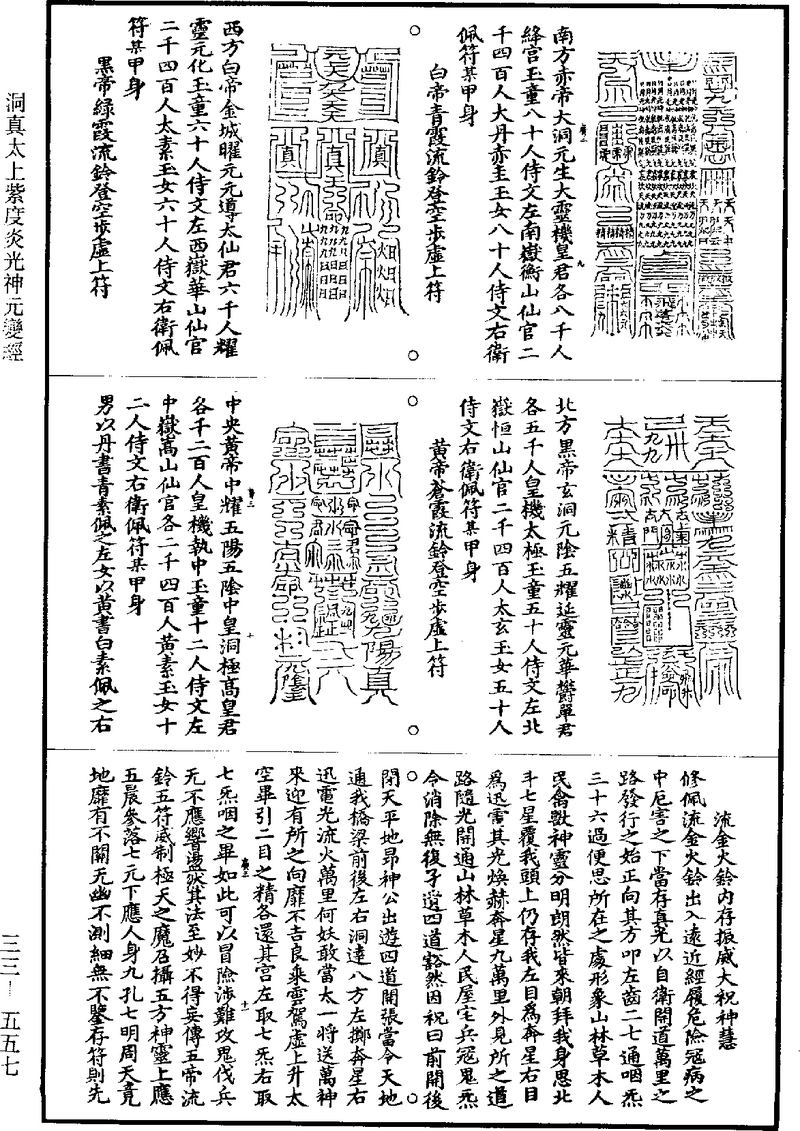 南方赤帝大洞元生大靈機皇君各八千人
絳宮玉童八十人侍文左南嶽衡山仙官二
千四百人大丹赤圭玉女八十人侍文右衛
佩符某甲身
白帝青霞流鈴登空步虛上符
西方白帝金城曜元元導太仙君六千人耀
靈元化玉童六十人侍文左西嶽華山仙官
二千四百人太素玉女六十人侍文右衛佩
符某甲身
黑帝綠霞流鈴登空步虛上符
北方黑帝玄洞元陰五耀延靈元華欝單君
各五千人皇機太極玉童五十人侍文左北
嶽恒山仙官二千四百人太玄玉女五十人
侍文右衛佩符某甲身
黃帝蒼霞流鈴登空步虛上符
中央黃帝中耀五陽五陰中皇洞極高皇君
各千二百人皇機執中玉童十二人侍文左
中嶽嵩山仙官各二千四百人黃素玉女十
二人侍文右衛佩符某甲身
男以丹書青素佩之左女以黃書白素佩之右
流金火鈴內存振威大祝神慧
修佩流金火鈴出入遠近經履危險冠病之
中厄害之下當存真光以自衛開道萬里之
路發行之始正向其方叩左齒二七通咽炁
三十六過便思所在之處形象山林草木人
民禽獸神靈分明朗然皆來朝拜我身思北
斗七星覆我頭上仍存我左目為奔星右目
為迅電其光煥赫奔星九萬里外見所之道
路隨光開通山林草木人民屋宅兵冠鬼炁
令消除無復孑遺四道豁然因祝曰前開後
閉天平地昂神公出遊四道開張當令天地
通我橋梁前後左右洞達八方左擲奔星右
迅電光流火萬里何妖敢當太一將送萬神
來迎有所之向靡不吉良乘雲駕虛上升太
空畢引二目之精各還其宮左取七炁右取
七炁咽之畢如此可以冒險涉難攻鬼伐兵
无不應響盪災其法至妙不得妄傳五帝流
鈴五符威制極天之魔召攝五方神靈上應
五晨參落七元下應人身九孔七明周天竟
地靡有不關无幽不測細無不鑒存符則先
洞真太上紫度炎光神元變經
三三—五五七